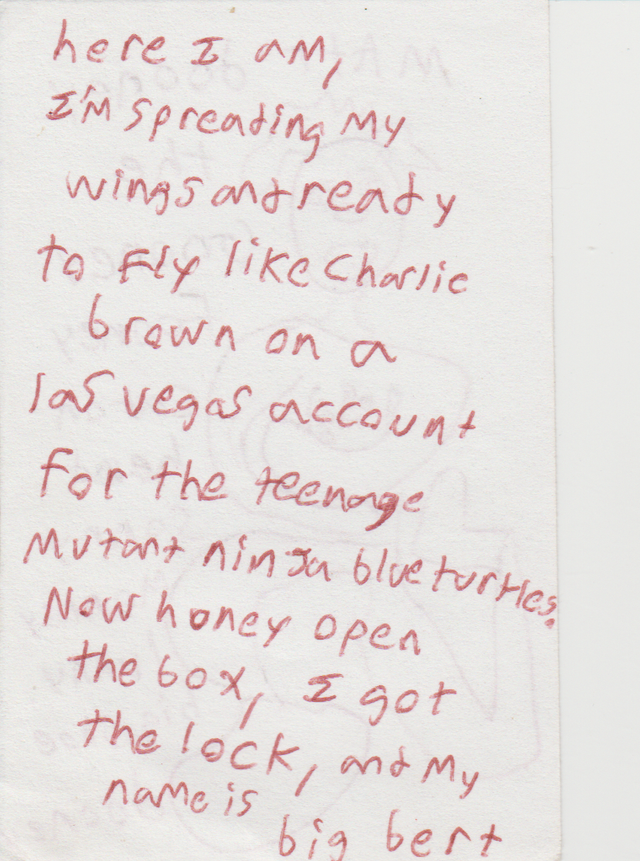 here I am,
I'm spreading my
wings and ready
to fly like Charlie
brown on a
las vegas account
for the teenage
mutant ninja blue turtles.
Now honey open
the box, I got
the lock, and my
name is
big bert